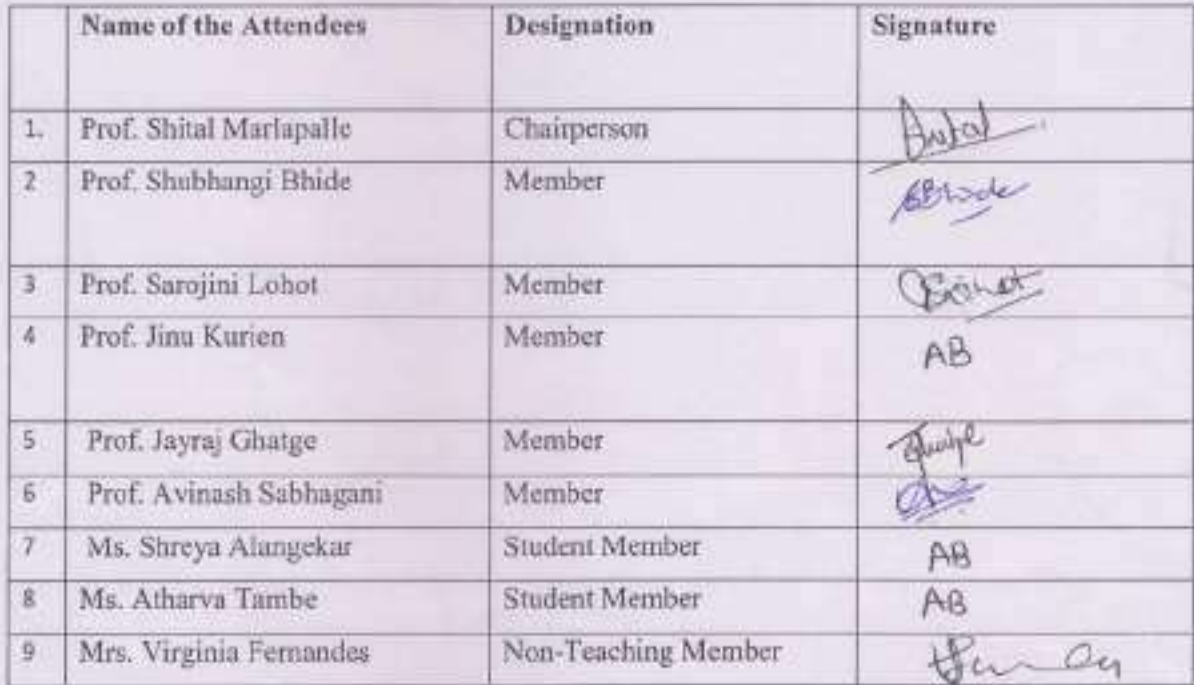 Name of the Attendees Designation Signature
1. Prof. Shital Marlapalle Chairperson Shital
2 Prof. Shubhangi Bhide Member SBhide
3 Prof. Sarojini Lohot Member
4 Prof. Jinu Kurien Member AB
5 Prof. Jayraj Ghatge Member
6 Prof. Avinash Sabhagani Member
7 Ms. Shreya Alangekar Student Member AB
8 Ms. Atharva Tambe Student Member AB
9 Mrs. Virginia Fernandes Non-Teaching Member